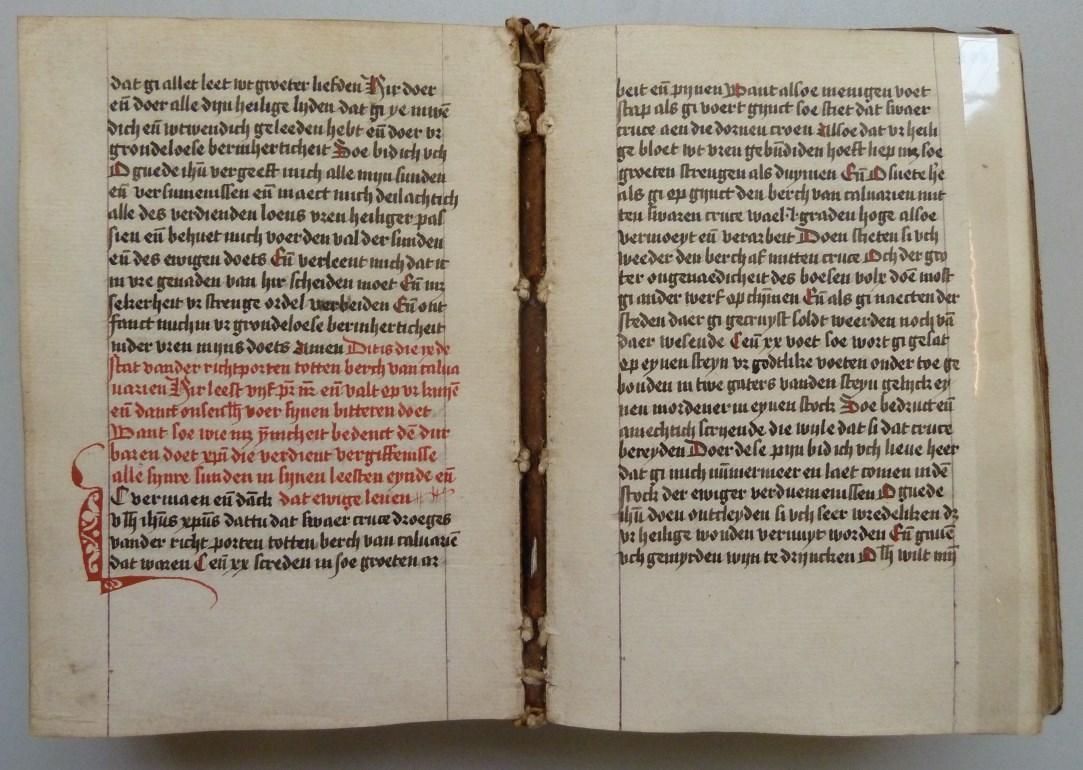 dat gi allet leet wt groeter liefden Hir doer
eñ doer alle dijn heilige lyden dat gi ye inwē
dich eñ wtwendich geleeden hebt eñ doer vr
grondeloese bermherticheit Soe bid ich vch
O guede ihū vergeeft mich alle mijn sunden
eñ versumenissen eñ maect mich deilachtich
alle des verdienden loens vren heiliger pas
sien eñ behuet mich voer den val der sunden
eñ des ewigen doets Eñ verleent mich dat ic
in vre genaden van hir scheiden moet Eñ mz
sekerheit vr strenge ordel verbeiden Eñ ont
fanct mich in vr grondeloese bermherticheit
in der vren mijns doets Amen Dit is die
stat vander richtporten totten berch van calua
uarien Hir leest vijf pr̄ nr̄ eñ valt op vr knyē
eñ danct onsen voer synen bitteren doet
Want soe wie mz ynicheit bedenct dē dur
baren doet xp̄i die verdient vergiffenisse
alle synre sunden in synen leesten eynde eñ
C vermaen eñ dāck dat ewige leuen
v ihūs xpūs dattu dat swaer cruce droeges
vander richt porten totten berch van caluariē
dat waren Ceñ xx screden in soe groeten ar
beit eñ pijnen Want alsoe menigen voet
stap als gi voert gijnct soe stiet dat swaer
cruce aen die dornen croen Alsoe dat vr heili
ge bloet wt vren gebūdiden hoeft liep mz soe
groeten strengen als duymen Eñ O suete h̄e
als gi op gijnct den berch van caluarien mit
ten swaren cruce wael graden hoge alsoe
vermoeyt eñ verarbeit Doen stieten si vch
weeder den berch af mitten cruce Och der gro
ter ongenaedicheit des boesen volx doē most
gi ander werf op clymen Eñ als gi naecten der
steden daer gi gecruyst soldt weerden noch vā
daer wesende Ceñ xx voet soe wort gi gesat
op eynen steyn vr godtlike voeten onder toe ge
bonden in twe gaters vanden steyn gelijck ey
nen mordener in eynen stock Soe bedruct eñ
amechtich scryende die wyle dat si dat cruce
bereyden Doer dese pijn bid ich vch lieue heer
dat gi mich nūmermeer en laet comen in dē
stock der ewiger verduemenissen O guede
ihū doen ontcleyden si vch seer wredeliken dz
vr heilige wonden vernuyt worden Eñ gauē
vch gemyrden wijn te drijncken O wilt mij